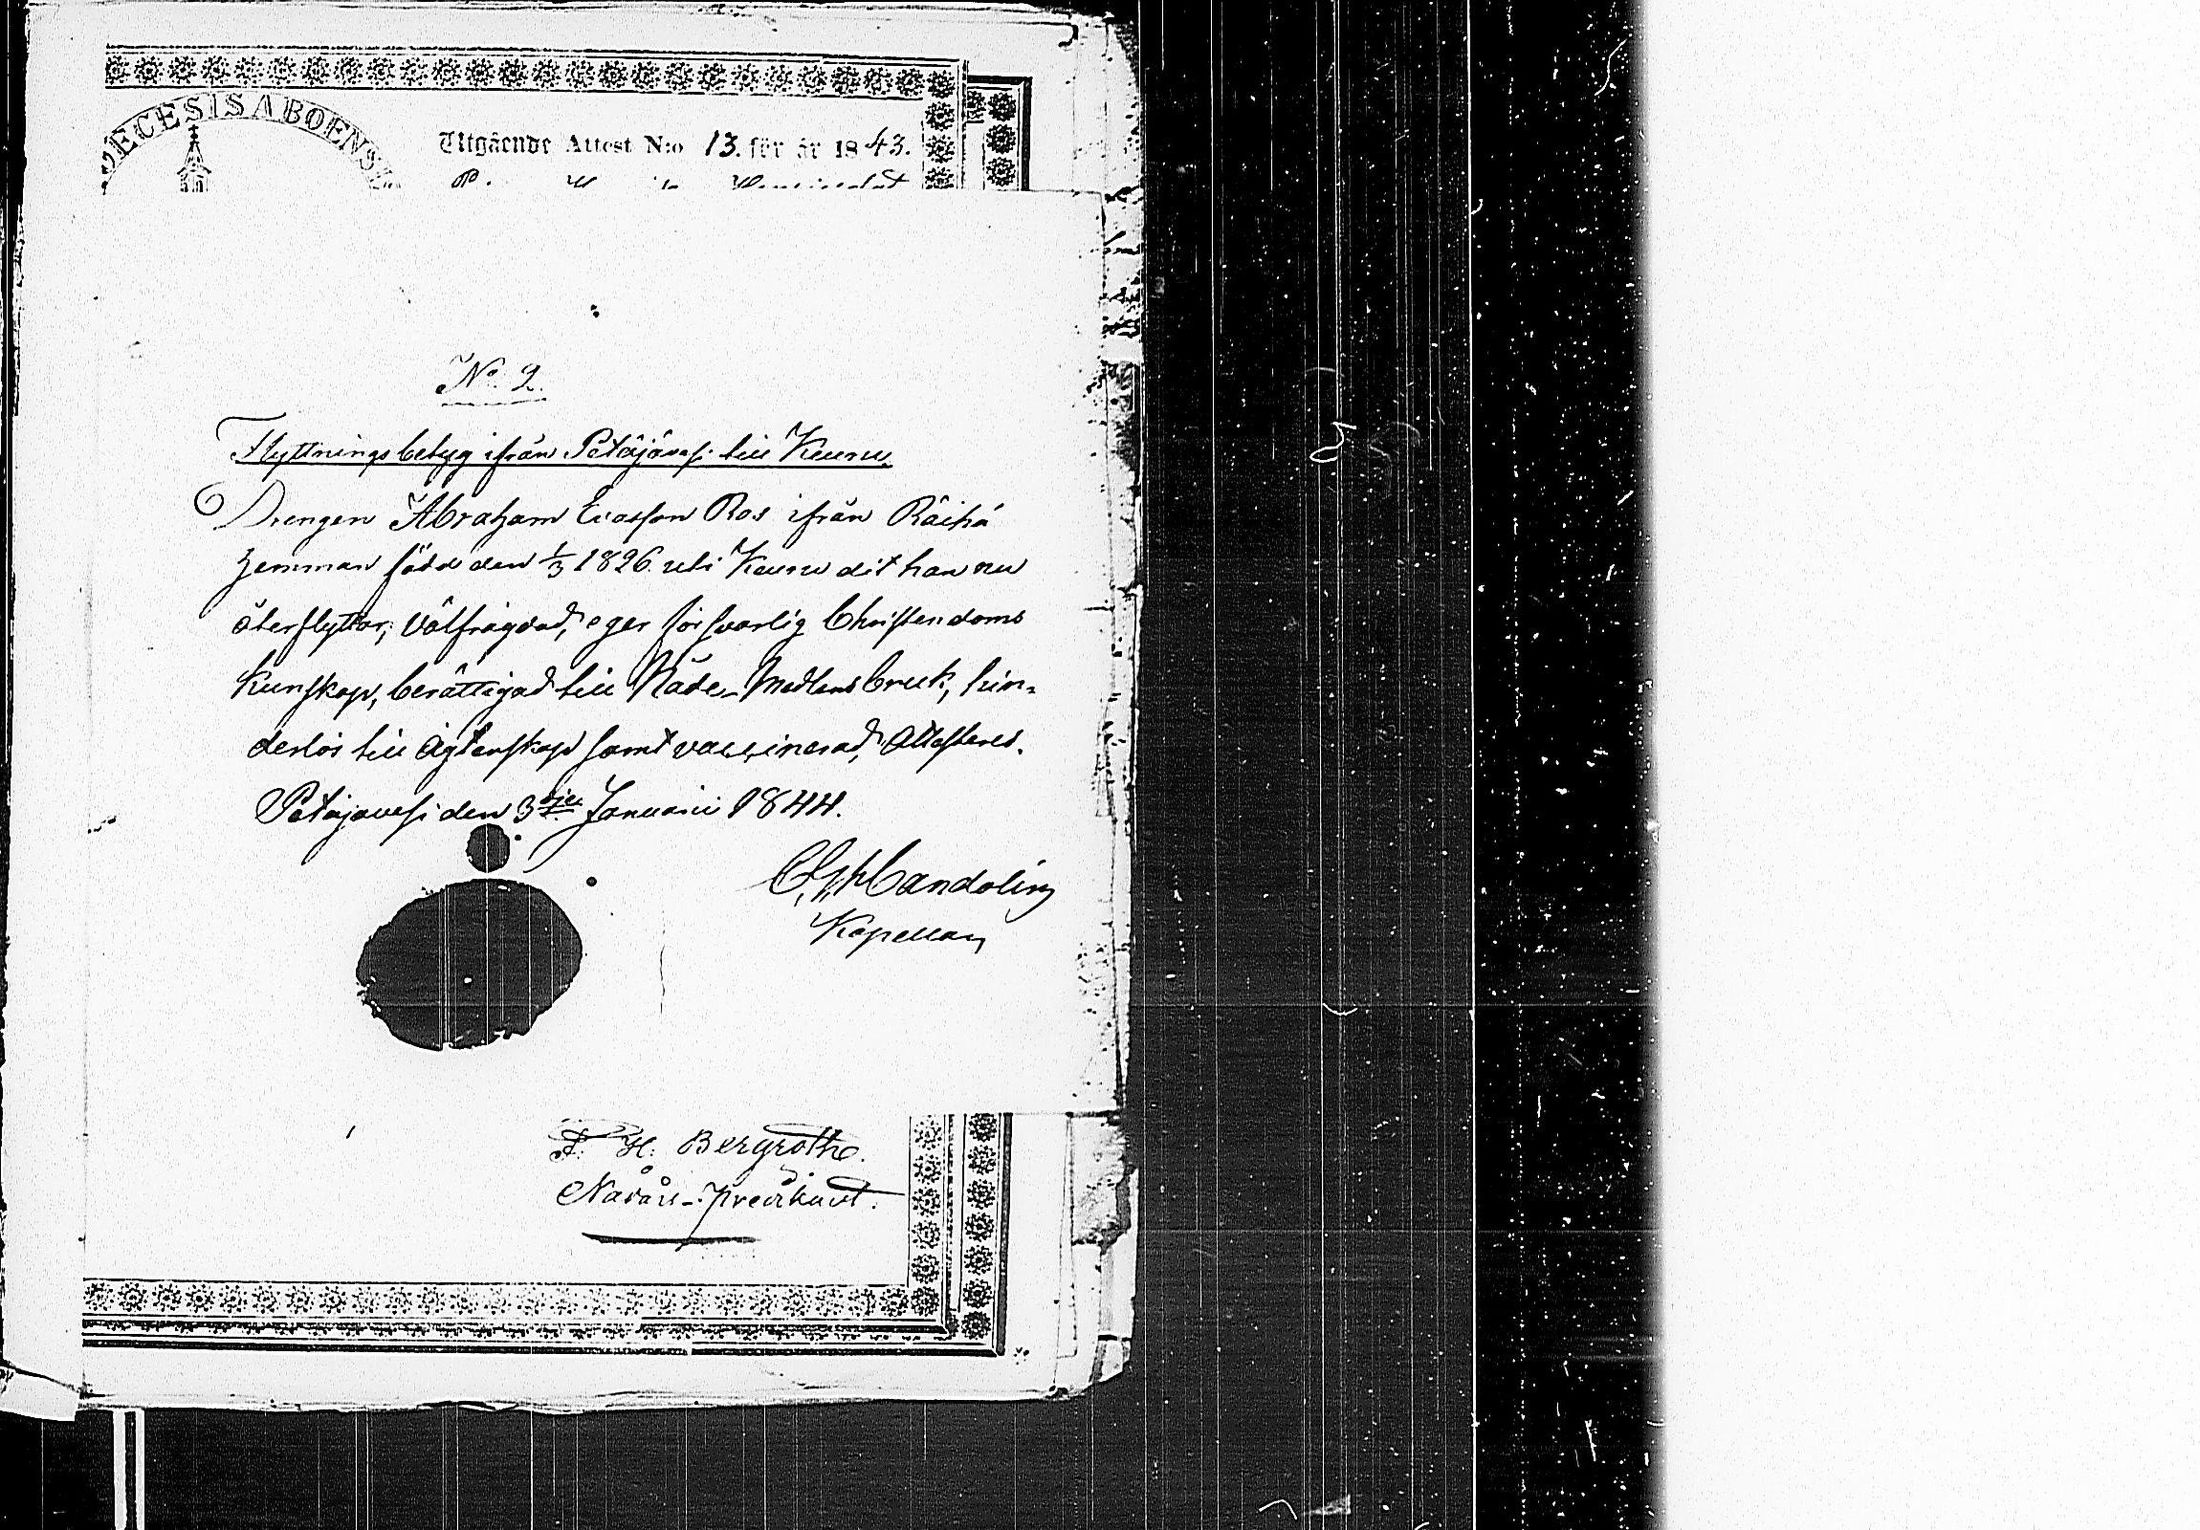 DIECESIS ABOENSIS
Utgående Attest N:o 13. för år 1843.
No. 2.
Flyttningsbetyg ifrån Petäjävesi till Keuru.
Drengen Abraham Ersson Ros ifrån Räihä
hemman född den 1/3 1826 uti Keuru dit han nu
återflyttar; välfrägdad, eger försvarlig Christendoms
kunskap, berättigad till Nåde-Medlens bruk, hin-
derlös till Ägtenskap samt vaccinerad, Attesteres.
Petäjävesi den 3dje Januarii 1844.
Candolin
Kapellan
F. H. Bergroth.
Nådårs-predikant.